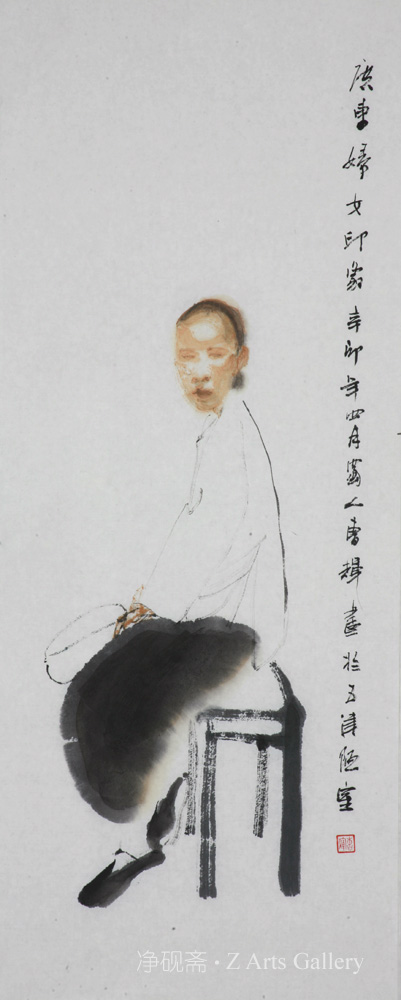 廣東婦女印象辛卯年四月蜀人曾輝畫於天津隱室
净砚斋·Z Arts Gallery